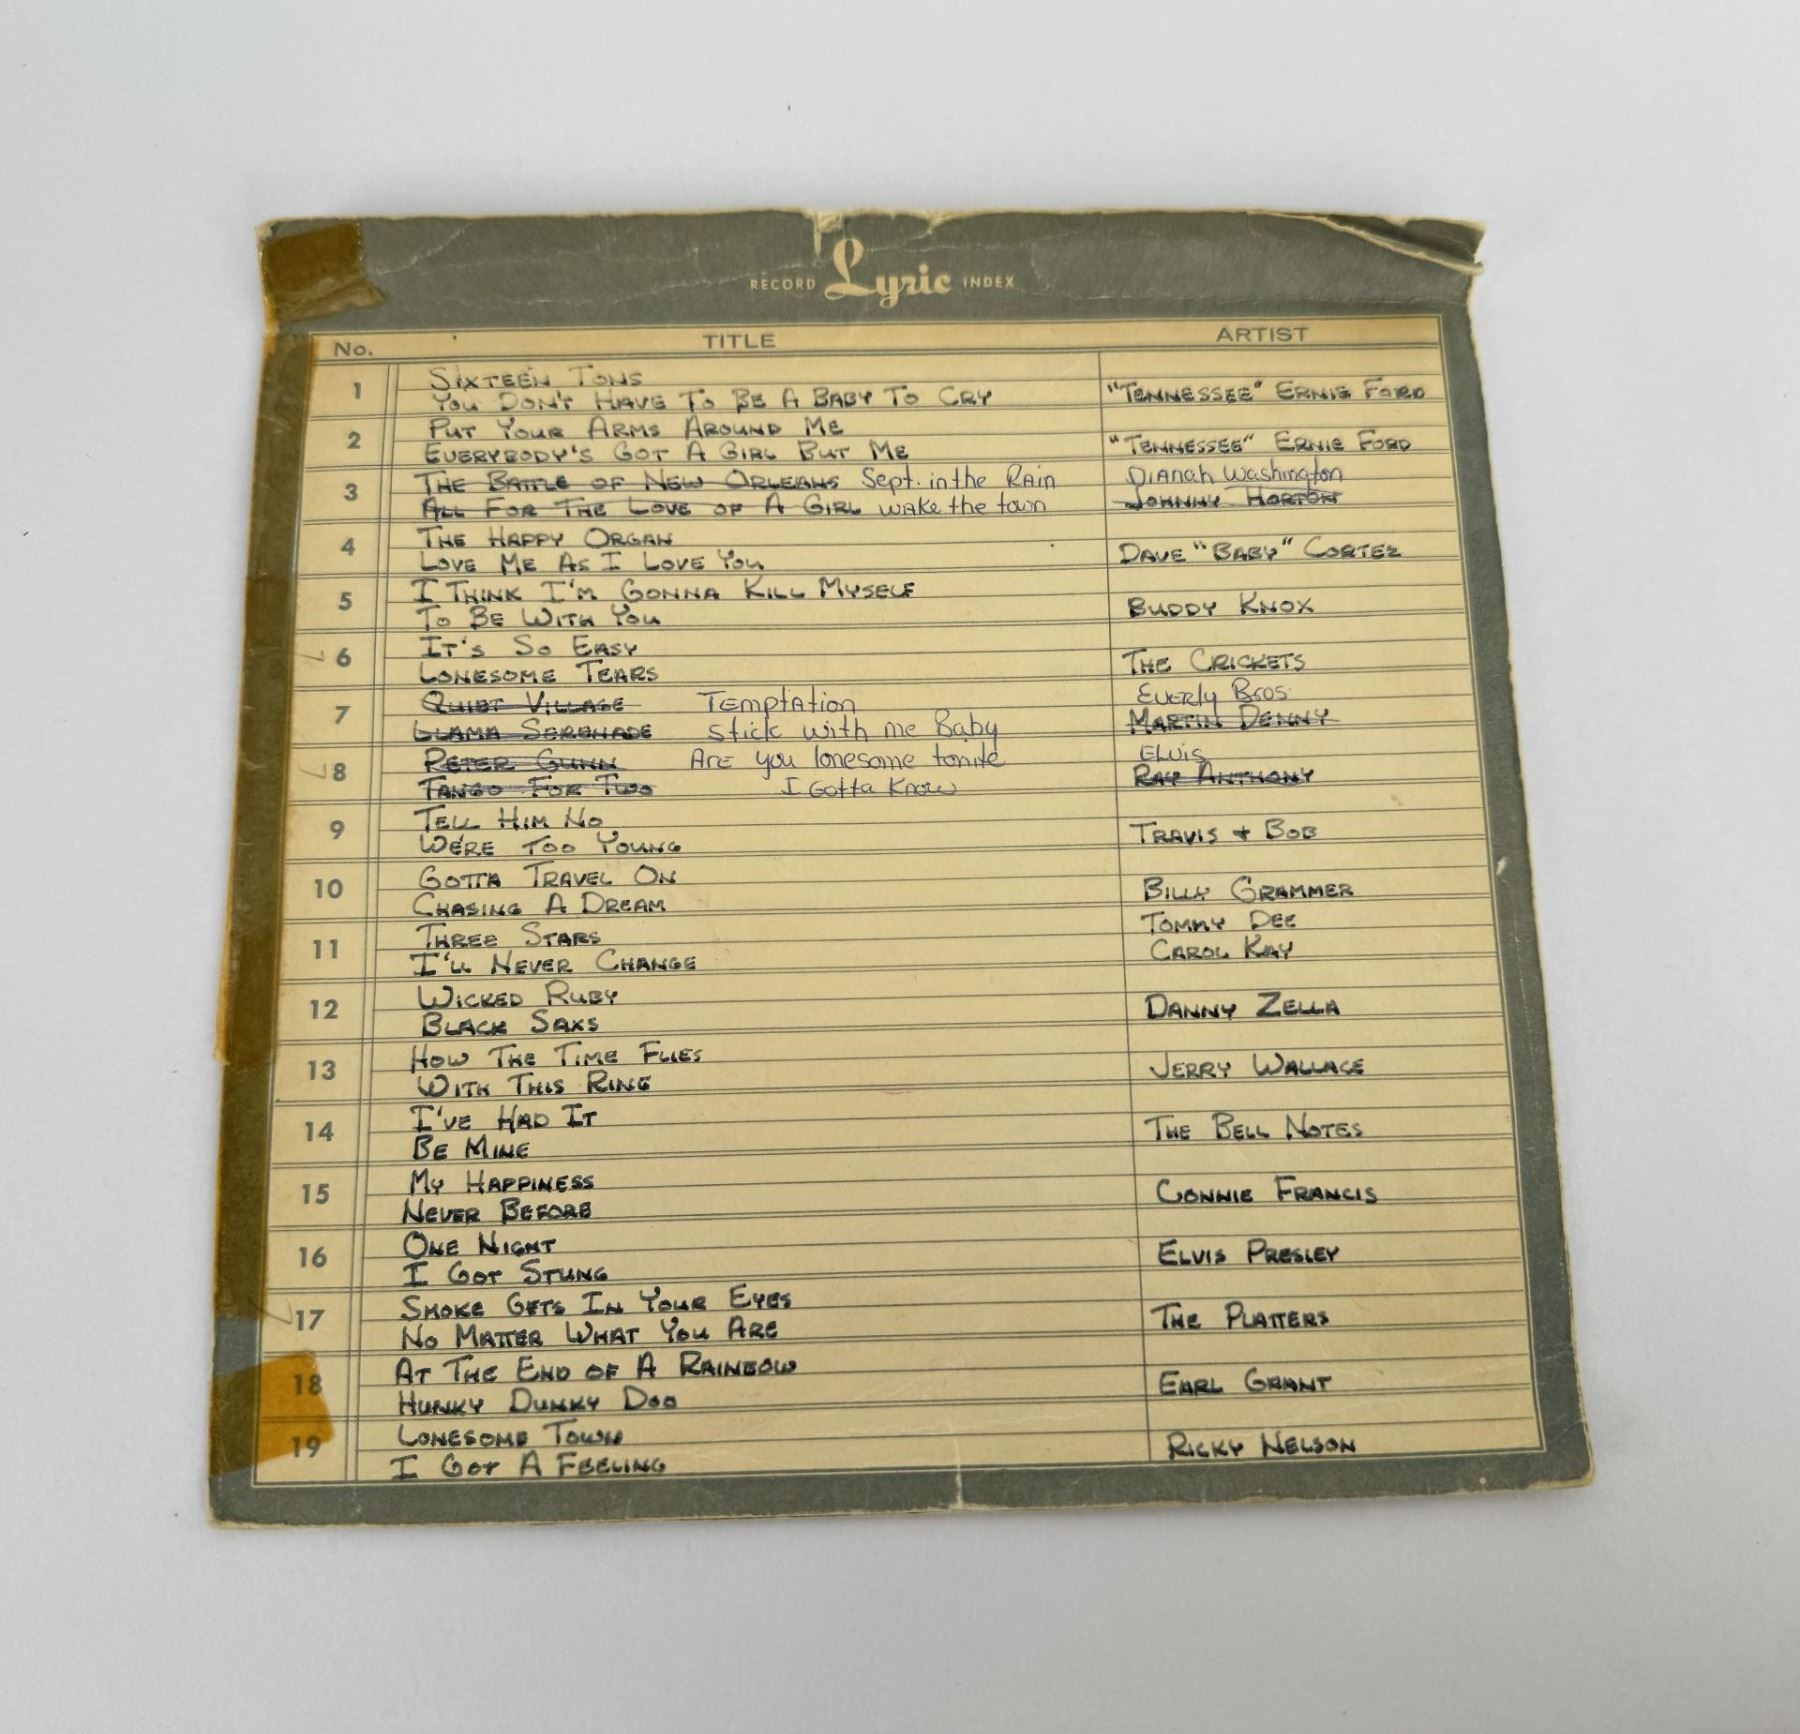 RECORD Lyric INDEX
No. TITLE ARTIST
SIXTEEN TONS
1 YOU DON'T HAVE TO BE A BABY TO CRY "TENNESSEE" ERNIE FORD
PUT YOUR ARMS AROUND ME
2 EVERYBODY'S GOT A GIRL BUT ME "TENNESSEE" ERNIE FORD
THE BATTLE OF NEW ORLEANS Sept. in the Rain Dianah Washington
3 ALL FOR THE LOVE OF A GIRL wake the town JOHNNY HORTON
THE HAPPY ORGAN
4 LOVE ME AS I LOVE YOU DAVE "BABY" CORTEZ
I THINK I'M GONNA KILL MYSELF
5 TO BE WITH YOU BUDDY KNOX
IT'S SO EASY
6 LONESOME TEARS THE CRICKETS
QUIET VILLAGE Temptation Everly Bros.
7 LLAMA SERENADE Stick with me Baby MARTIN DENNY
PETER GUNN Are you lonesome tonite Elvis
8 TANGO FOR TWO I Gotta Know RAY ANTHONY
TELL HIM NO
9 WE'RE TOO YOUNG TRAVIS + BOB
GOTTA TRAVEL ON
10 CHASING A DREAM BILLY GRAMMER
THREE STARS TOMMY DEE
11 I'LL NEVER CHANGE CAROL KAY
WICKED RUBY
12 BLACK SAXS DANNY ZELLA
HOW THE TIME FLIES
13 WITH THIS RING JERRY WALLACE
I'VE HAD IT
14 BE MINE THE BELL NOTES
MY HAPPINESS
15 NEVER BEFORE CONNIE FRANCIS
ONE NIGHT
16 I GOT STUNG ELVIS PRESLEY
SMOKE GETS IN YOUR EYES
17 NO MATTER WHAT YOU ARE THE PLATTERS
AT THE END OF A RAINBOW
18 HUNKY DUNKY DOO EARL GRANT
LONESOME TOWN
19 I GOT A FEELING RICKY NELSON